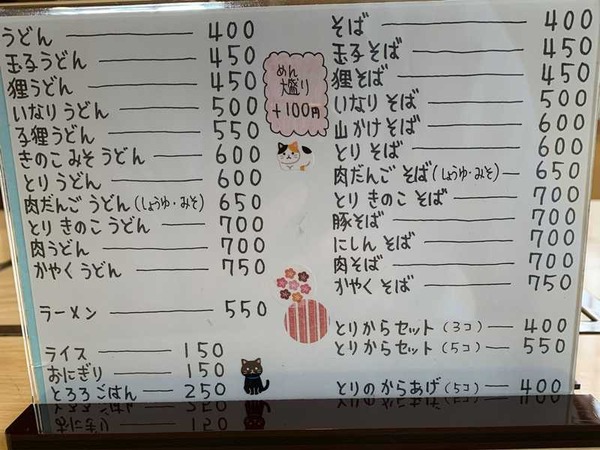 うどん 400
玉子うどん 450
狸うどん 450
いなりうどん 500
子狸うどん 550
きのこみそうどん 600
とりうどん 600
肉だんごうどん(しょうゆ・みそ) 650
とりきのこうどん 700
肉うどん 700
かやくうどん 750
ラーメン 550
ライス 150
おにぎり 150
とろろごはん 250
めん
大盛り
+100円
そば 400
玉子そば 450
狸そば 450
いなりそば 500
山かけそば 600
とりそば 600
肉だんごそば(しょうゆ・みそ) 650
とりきのこそば 700
豚そば 700
にしんそば 700
肉そば 700
かやくそば 750
とりからセット(3コ) 400
とりからセット(5コ) 550
とりのからあげ(5コ) 400